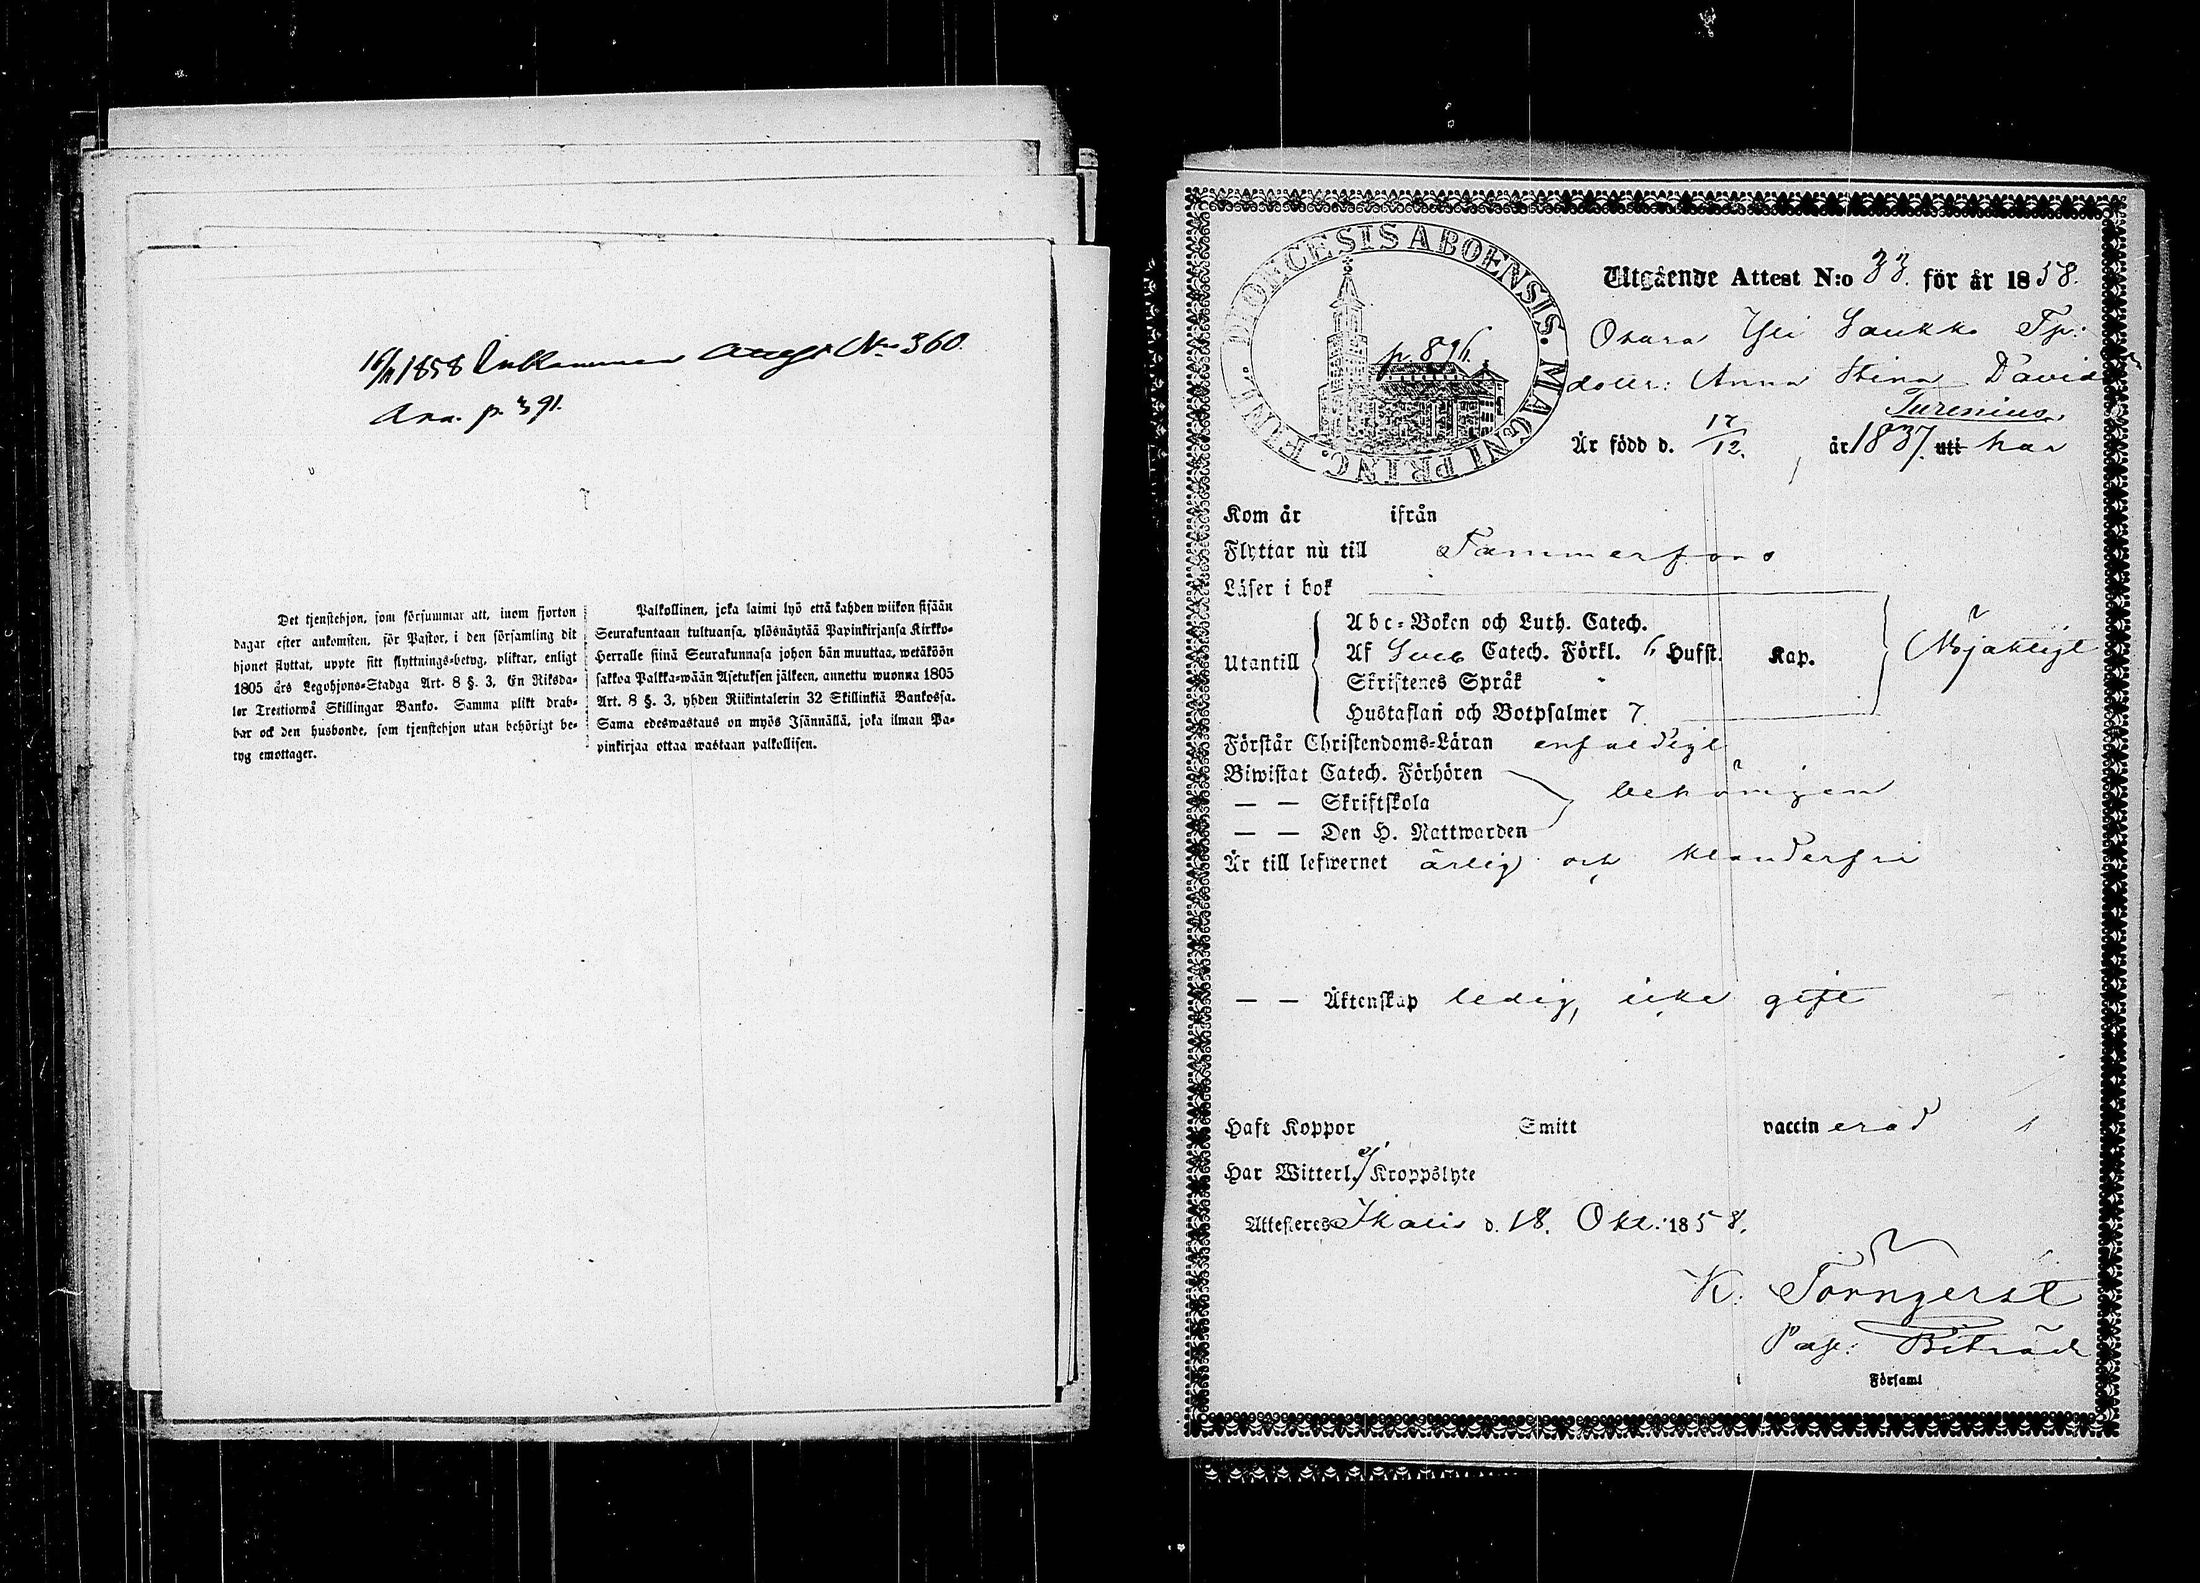 16/11 1858 Inkommen Attest No 360.
Ana. p. 391.
Det tjenstehjon, som försummar att, inom fjorton
dagar efter ankomsten, för Pastor, i den församling dit
hjonet flyttat, uppte sitt flyttnings-betyg, pliktar, enligt
1805 års Legohjons-Stadga Art. 8 §. 3, En Riksda-
ler Trettiotwå Skillingar Banko. Samma plikt drab-
bar ock den husbonde, som tjenstehjon utan behörigt be-
tyg emottager.
Palkollinen, joka laimi lyö että kahden wiikon sisään
Seurakuntaan tultuansa, ylösnäytää Papinkirjansa Kirkko-
Herralle siinä Seurakunnasa johon hän muuttaa, wetäköön
sakkoa Palkka-wään Asetuksen jälkeen, annettu wuonna 1805
Art. 8 §. 3, yhden Riikintalerin 32 Skillinkiä Bankossa.
Sama edeswastaus on myös Isännällä, joka ilman Pa-
pinkirjaa ottaa wastaan palkollisen.
DIOECESIS ABOENSIS. MAGNI PRINC. FINL.
p. 896.
Utgående Attest N:o 33. för år 1858.
Osara Yli Saukko Tp:
dotter: Anna Stina David
Turenius,
Är född d. 17/12. år 1837. uti här
Kom år ifrån
Flyttar nu till Tammerfors
Läser i bok
Utantill
Abc-Boken och Luth. Catech.
Af Sveb Catech. Förkl. 6 Hufst. Kap.
Skriftenes Språk
Hustaflan och Botpsalmer 7.
Nöjaktigt
Förstår Christendoms-Läran enfaldigt
Biwistat Catech. Förhören
— — Skriftskola
— — Den H. Nattwarden
behörigen
Är till lefwernet ärlig och klanderfri
— — Äktenskap ledig, icke gift
Haft Koppor Smitt vaccinerad
Har Witterl. ej Kroppslyte
Attesteres Ikalis d. 18. Okt. 1858.
K. Törnqerst
Past. Biträde
i Församl